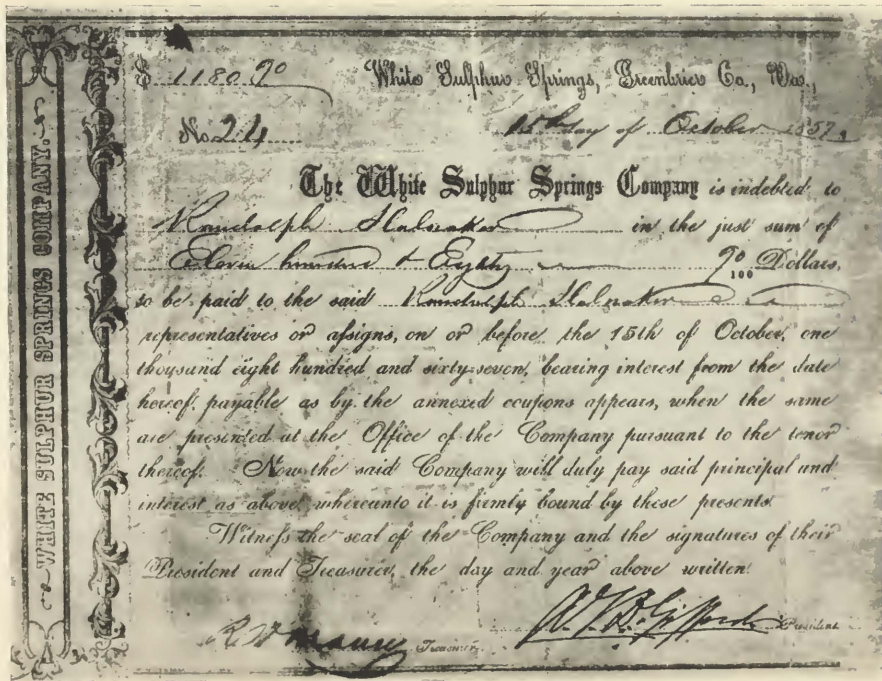 WHITE SULPHUR SPRINGS COMPANY.
$ 1180 90 White Sulphur Springs, Greenbrier Co., Va.,
No. 24 15th day of October 1857,
The White Sulphur Springs Company is indebted to
Randolph Stalnaker in the just sum of
Eleven hundred & Eighty 90/100 Dollars,
to be paid to the said Randolph Stalnaker
representatives or assigns, on or before the 15th of October, one
thousand eight hundred and sixty-seven, bearing interest from the date
hereof, payable as by the annexed coupons appears, when the same
are presented at the Office of the Company pursuant to the tenor
thereof. Now the said Company will duly pay said principal and
interest as above, whereunto it is firmly bound by these presents.
Witness the seal of the Company and the signatures of their
President and Treasurer, the day and year above written.
Treasurer. President.